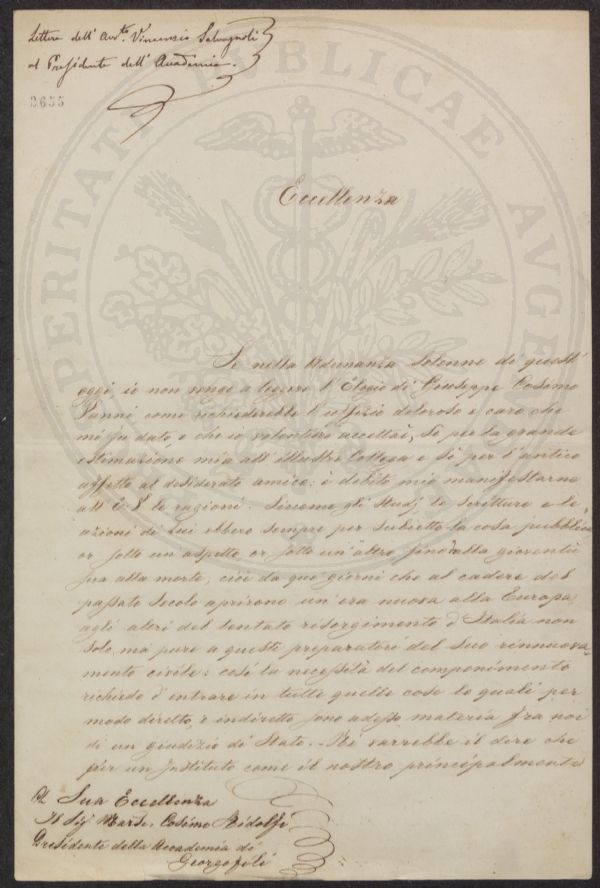 Lettera dell' Avv.to Vincenzio Salvagnoli
al Presidente dell' Accademia.
2655
PERITATI PUBLICAE AUGEN
Eccellenza
Se nella Adunanza solenne di quest'
oggi io non vengo a leggere l'Elogio di Giuseppe Cosimo
Vanni come richiederebbe l'uffizio doloroso e caro che
mi fu dato e che io volentiero accettai, sì per la grande
estimazione mia all'illustre Collega e sì per l'antico
affetto al desiderato amico; è debito mio manifestarne
all' E. V. le ragioni. Siccome gli studj le scritture e le
azioni di Lui ebbero sempre per subietto la cosa pubblica
or sotto un aspetto or sotto un'altro fino dalla gioventù
sua alla morte, cioè da que' giorni che al cadere del
passato secolo aprirono un'era nuova alla Europa
agli altri del tentato risorgimento d'Italia non
solo, ma pure a questi preparatori del suo rinnuova-
mento civile; così la necessità del componimento
richiede d'entrare in tutte quelle cose le quali per
modo diretto, e indiretto sono adesso materia fra noi
di un giudizio di Stato. - Nè varrebbe il dire che
per un Instituto come il nostro principalmente
A Sua Eccellenza
Il Sig. Marse. Cosimo Ridolfi
Presidente della Accademia dei
Georgofili